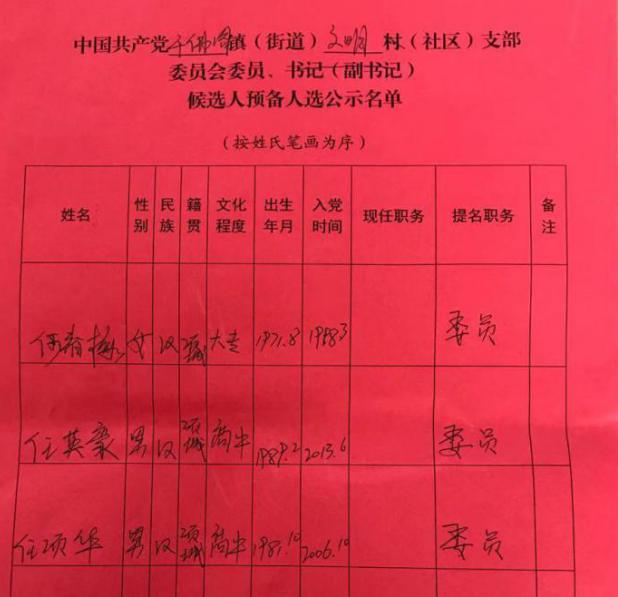 中国共产党千佛阁镇（街道）文明村（社区）支部
委员会委员、书记（副书记）
候选人预备人选公示名单
（按姓氏笔画为序）
姓名 性别 民族 籍贯 文化程度 出生年月 入党时间 现任职务 提名职务 备注
何春梅 女 汉 项城 大专 1971.8 委员
任英豪 男 汉 项城 高中 1989.2 2013.6 委员
任项华 男 汉 项城 高中 1981.10 2006.10 委员